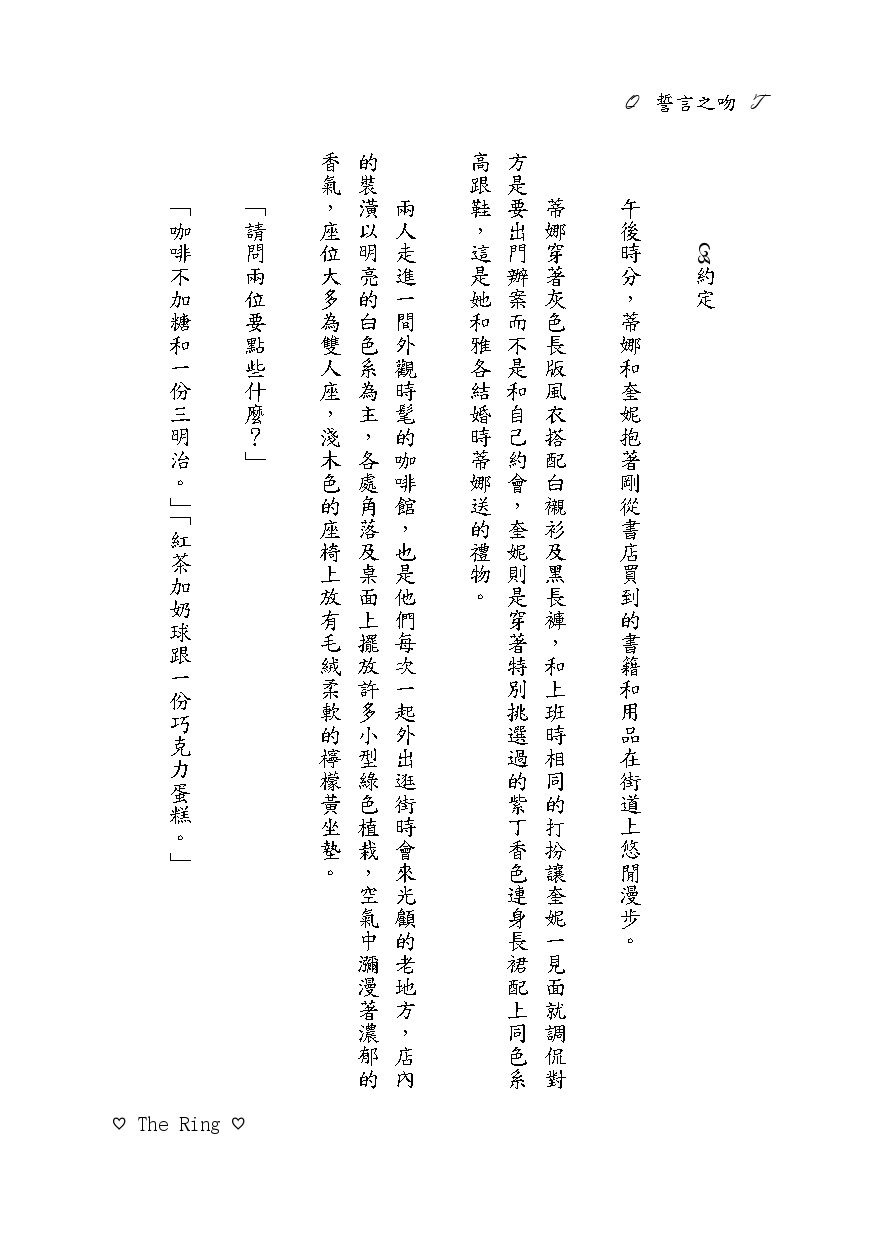 O 誓言之吻 T
約定
午後時分，蒂娜和奎妮抱著剛從書店買到的書籍和用品在街道上悠閒漫步。
蒂娜穿著灰色長版風衣搭配白襯衫及黑長褲，和上班時相同的打扮讓奎妮一見面就調侃對
方是要出門辦案而不是和自己約會，奎妮則是穿著特別挑選過的紫丁香色連身長裙配上同色系
高跟鞋，這是她和雅各結婚時蒂娜送的禮物。
兩人走進一間外觀時髦的咖啡館，也是他們每次一起外出逛街時會來光顧的老地方，店內
的裝潢以明亮的白色系為主，各處角落及桌面上擺放許多小型綠色植栽，空氣中瀰漫著濃郁的
香氣，座位大多為雙人座，淺木色的座椅上放有毛絨柔軟的檸檬黃坐墊。
「請問兩位要點些什麼？」
「咖啡不加糖和一份三明治。」「紅茶加奶球跟一份巧克力蛋糕。」
♡ The Ring ♡